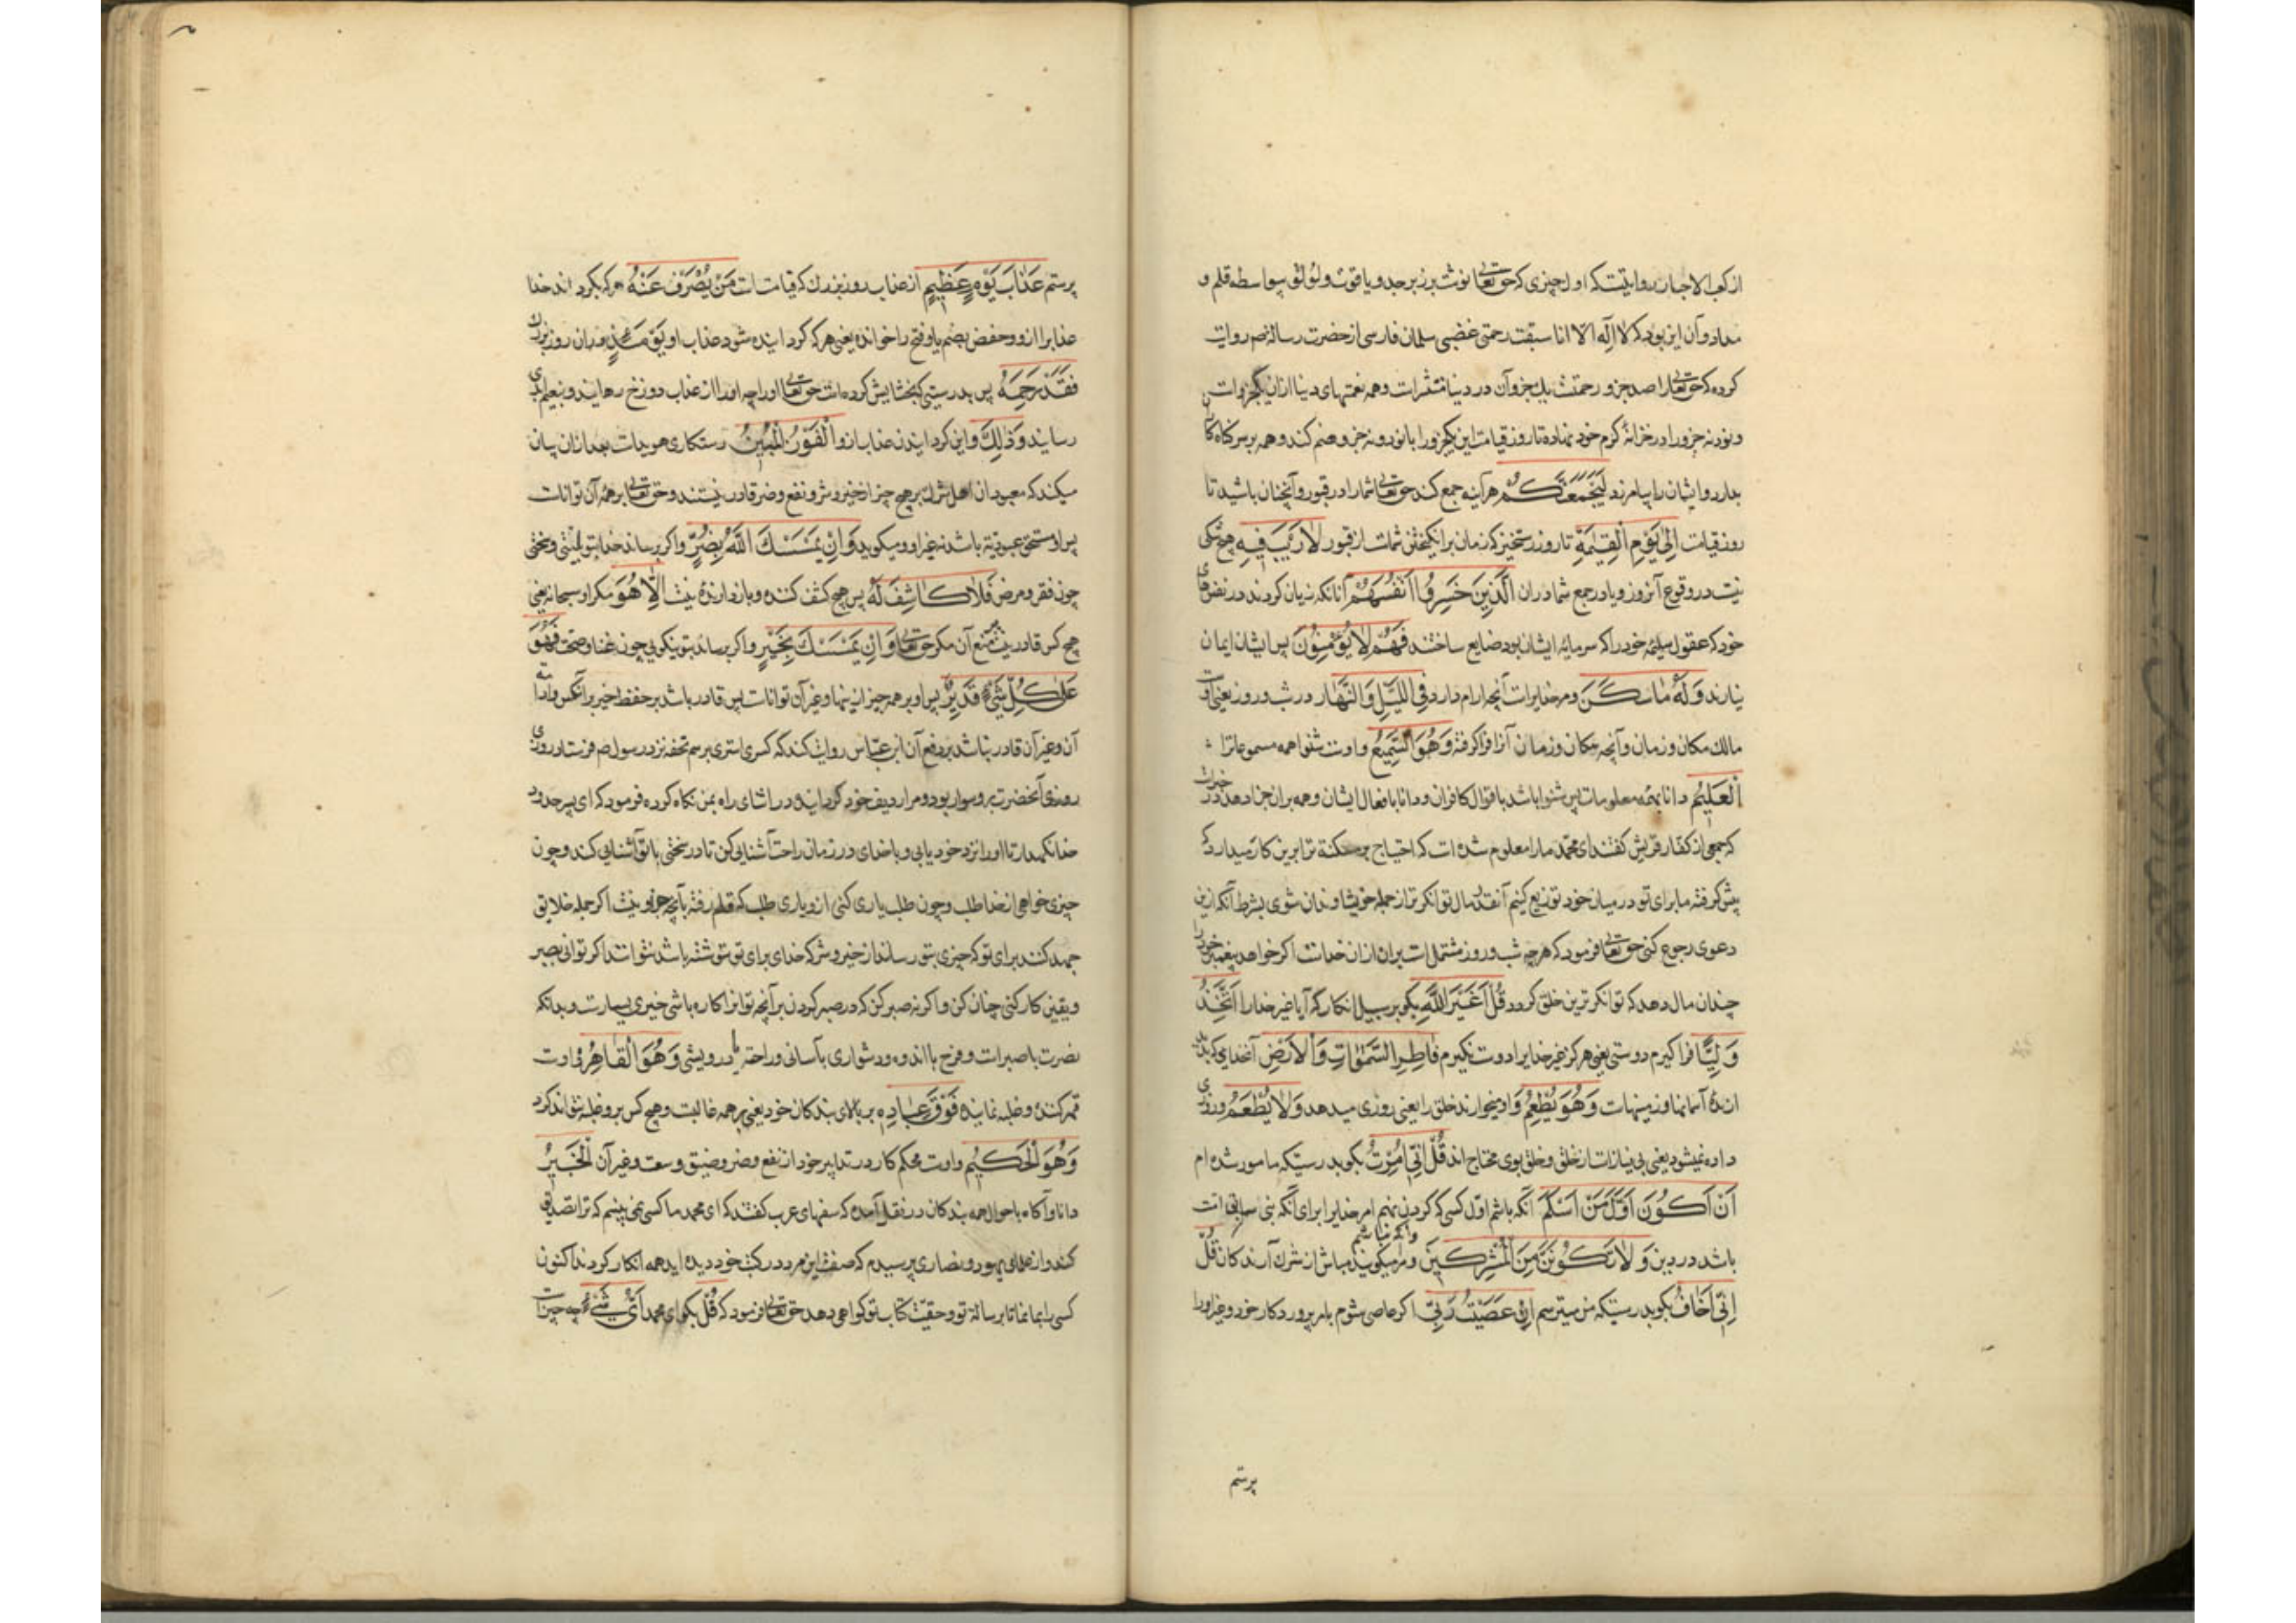 از کعب الاحبار روایتست که اول چیزی که حق تعالی نوشت بر زبرجد و یاقوت و لؤلؤ بواسطه قلم و
مداد و آن این بود که لا اله الا انا سبقت رحمتی غضبی سلمان فارسی از حضرت رسالة ص روایت
کرده که حق تعالی را صد جزو رحمتست یک جزو آن در دنیا منتشرات و همه نعمتهای دنیا ازان یکجزوات
و نود نه جزو را در خزانهٔ کرم خود نهاده تا روز قیامت این یکجزو را با نود و نه جزو ضم کند و همه بر سر کناه کاران
بدارد و ایشان را بیامرزد لَیَجْمَعَنَّکُمْ هر آینه جمع کند حق تعالی شما را در قبور و آنچنان باشید تا
روز قیامت اِلٰی یَوْمِ الْقِیٰمَةِ تا روز رستخیز که زمان برانکیختن شماست از قبور لَارَیْبَ فِیهِ هیچ شکی
نیست در وقوع آنروز و یا در جمع شما دران الَّذِینَ خَسِرُوا اَنْفُسَهُمْ آنانکه زیان کردند در نفسهای
خود که عقول سلیمهٔ خود را که سرمایهٔ ایشان بود ضایع ساختند فَهُمْ لَا یُؤْمِنُونَ پس ایشان ایمان
نیارند وَلَهُ مَاسَکَنَ و مر خدایراست آنچه ارام دارد فِی الَّیْلِ وَالنَّهَارِ در شب و روز یعنی اوست
مالک مکان و زمان و آنچه مکان و زمان آنرا فرا کرفته وَهُوَ السَّمِیعُ و اوست شنوا همه مسموعاترا
الْعَلِیمُ دانا بهمه معلومات پس شنوا باشد باقوال کافران و دانا بافعال ایشان و همه بران جزا دهد در خبراست
که جمعی از کفار قریش کفتند ای محمد ما را معلوم شده است که احتیاج و مسکنة ترا برین کار میدارد که
پیش کرفته ما برای تو در میان خود توزیع کنیم آنقدر مال تو انکرتر از جمله خویشاوندان شوی بشرط آنکه ازین
دعوی رجوع کنی حق تعالی فرمود که هر چه شب و روز مشتملات بران ازان خداست اکر خواهد پیغمبر خود را
چندان مال دهد که توانکرترین خلق کردد قُلْ اَغَیْرَ اللّٰهِ بکو بر سبیل انکار که آیا غیر خدا را اَتَّخِذُ
وَلِیًّا فرا کیرم دوستی یعنی هرکز غیر خدایرا دوست نکیرم فَاطِرِ السَّمٰوَاتِ وَالْاَرْضِ آنخدای که پدید
ارندهٔ آسمانها و زمینهاست وَهُوَ یُطْعِمُ و او میخوارند خلق را یعنی روزی میدهد وَلَا یُطْعَمُ و روزی
داده نمیشود یعنی بی نیازست از خلق و خلق بوی محتاج اند قُلْ اِنِّی اُمِرْتُ بکو بدرستیکه مامور شده ام
اَنْ اَکُونَ اَوَّلَ مَنْ اَسْلَمَ آنکه باشم اول کسی که کردن نهم امر خدایرا برای آنکه نبی سابق امت
باشد در دین وَلَا تَکُونَنَّ مِنَ الْمُشْرِکِینَ و مرا میکویند مباش از شرک آرندکان قُلْ
اِنِّی اَخَافُ بکو بدرستیکه من میترسم اِنْ عَصَیْتُ رَبِّی اکر عاصی شوم بامر پروردکار خود و غیر او را
پرستم
پرستم عَذَابَ یَوْمٍ عَظِیمٍ از عذاب روز بزرک که قیامت است مَنْ یُصْرَفْ عَنْهُ هر که بکرداند خدا
عذابرا ازو و حفص بضم یا و فتح را خوانده یعنی هر که کردانیده شود عذاب او یَوْمَئِذٍ دران روز بزرک
فَقَدْ رَحِمَهُ پس بدرستی که بخشایش کرده است حق تعالی او را چه او را از عذاب دوزخ رهانید و بنعیم ابدی
رسانید وَذٰلِکَ و این کردانیدن عذاب ازو الْفَوْزُ الْمُبِینُ رستکاری هویداست بعد ازان بیان
میکند که معبودان اهل شرک بر هیچ چیز از خیر و شر و نفع و ضر قادر نیستند و حق تعالی بر همهٔ آن تواناست
پس او مستحق عبودیة باشد نه غیر او و میکوید وَاِنْ یَمْسَسْکَ اللّٰهُ بِضُرٍّ و اکر برساند خدا بتو بلیتی و سختی
چون فقر و مرض فَلَا کَاشِفَ لَهُ پس هیچ کشف کننده و باز دارندهٔ نیست اِلَّا هُوَ مکر او سبحانه یعنی
هیچ کس قادر نیست بر منع آن مکر حق تعالی وَاِنْ یَمْسَسْکَ بِخَیْرٍ و اکر برساند بتو نیکویی چون غنا و صحت فَهُوَ
عَلٰی کُلِّ شَیْءٍ قَدِیرٌ پس او بر همه چیز از اینها و غیر آن تواناست پس قادر باشد بر حفظ خیر برانکس و ادامه
آن و غیر آن قادر نباشد بر دفع آن ابن عباس روایت کند که کسری استری برسم تحفه نزد رسول ص فرستاد روزی
روزی آنحضرت برو سوار بود و مرا ردیف خود کردانید و در اثنای راه بمن نکاه کرده فرمود که ای پسر حدود
خدا نکهدار تا او را نزد خود یابی و با خدای در زمان راحت آشنایی کن تا در سختی با تو آشنایی کند و چون
چیزی خواهی از خدا طلب و چون طلب یاری کنی ازو یاری طلب که قلم رفته بآنچه اکر جمله خلایق
جهد کنند برای تو که چیزی بتو رسانند از خیر و شر که خدای برای تو ننوشته باشد نتوانند اکر توانی بصبر
و یقین کار کنی چنان کن و اکر نه صبر کن که در صبر کردن بر آنچه تو انرا کاره باشی خیری بسیارست و بدانکه
نصرت با صبراست و فرج با اندوه و دشواری بآسانی و راحة با درویشی وَهُوَ الْقَاهِرُ و اوست
قهر کننده و غلبه نماینده فَوْقَ عِبَادِهِ بر بالای بندکان خود یعنی بر همه غالبست و هیچ کس برو غلبه نتواند کرد
وَهُوَ الْحَکِیمُ و اوست محکم کار در تدابیر خود از نفع و ضر و ضیق و سعت و غیر آن الْخَبِیرُ
دانا و آکاه باحوال همه بندکان در نقل آمده که سفهای عرب کفتند که ای محمد ما کسی نمی بینیم که ترا تصدیق
کند و از علمای یهود و نصاری پرسیدیم که صفت این مرد در کتب خود دیده اید همه انکار کردند اکنون
کسی را بما نما تا برسالة تو و حقیّت کتاب تو کواهی دهد حق تعالی فرمود که قُلْ بکو ای محمد اَیُّ شَیْءٍ چه چیزاست